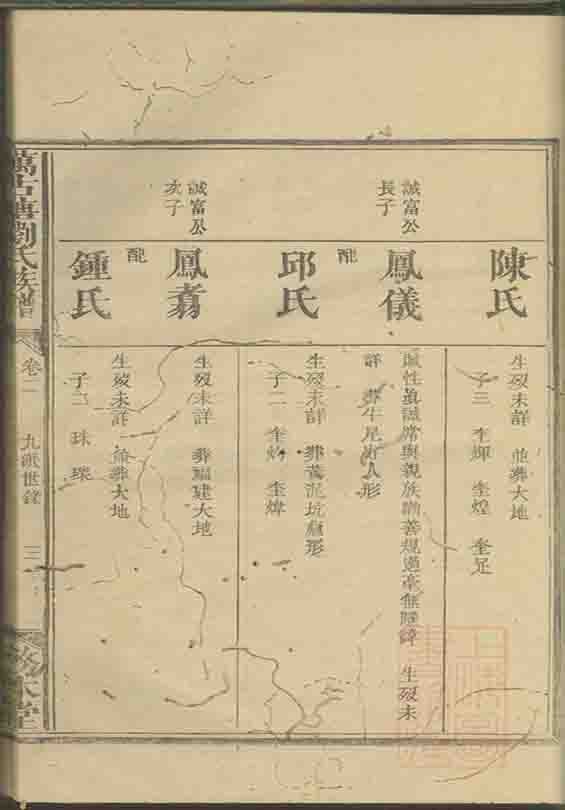 陳氏
生歿未詳 並葬大地
子三 奎輝 奎煌 奎足
誠富公
長子
鳳儀
性真誠常與親族勸善規過毫無 生歿未
詳 葬牛尾 人形
配
邱氏
生歿未詳 葬黃泥坑 形
子二 奎 奎煒
誠富公
次子
鳳翥
生歿未詳 葬福建大地
配
鍾氏
生歿未詳 並葬大地
子二 珠 璨
萬古塘劉氏族譜
卷二
九 世錄
三